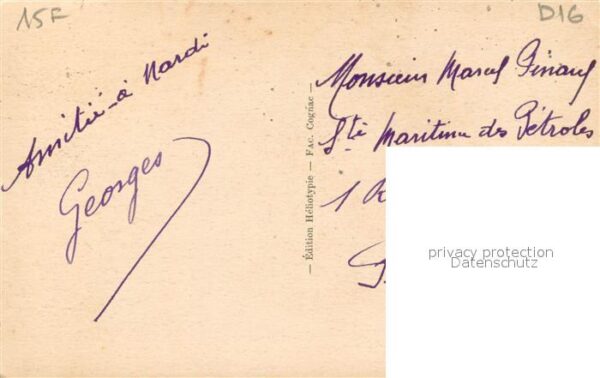 15F
D16
Amitié à Mardi
Georges
— Édition Héliotypie — Fac. Cognac —
Monsieur Marcel Pinard
Sté Maritime des Pétroles
1 R
privacy protection
Datenschutz